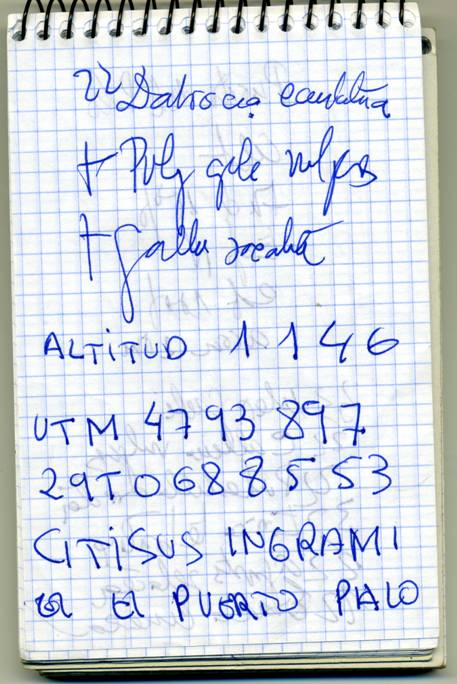 22 Daboecia cantabrica
+ Polygala vulgaris
+ Gallu
ALTITUD 1146
UTM 4793897
29T0688553
CITISUS INGRAMI
EN El PUERTO PALO